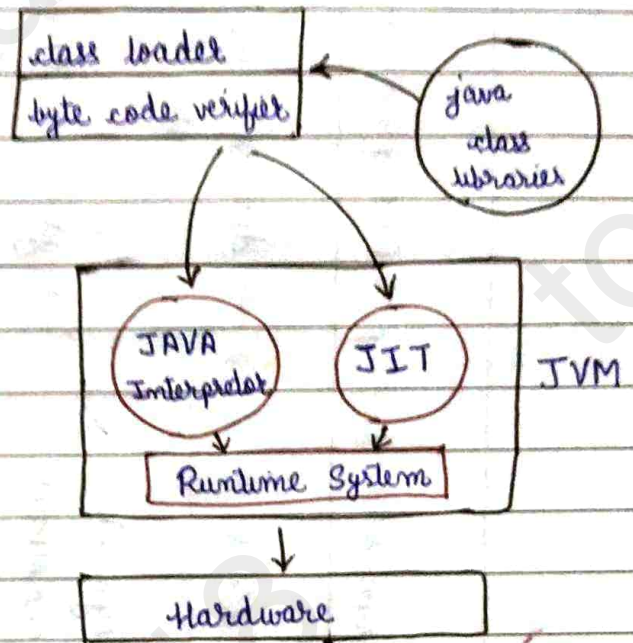 class loader
byte code verifier
java
class
libraries
JAVA
Interpretor
JIT
JVM
Runtime System
Hardware